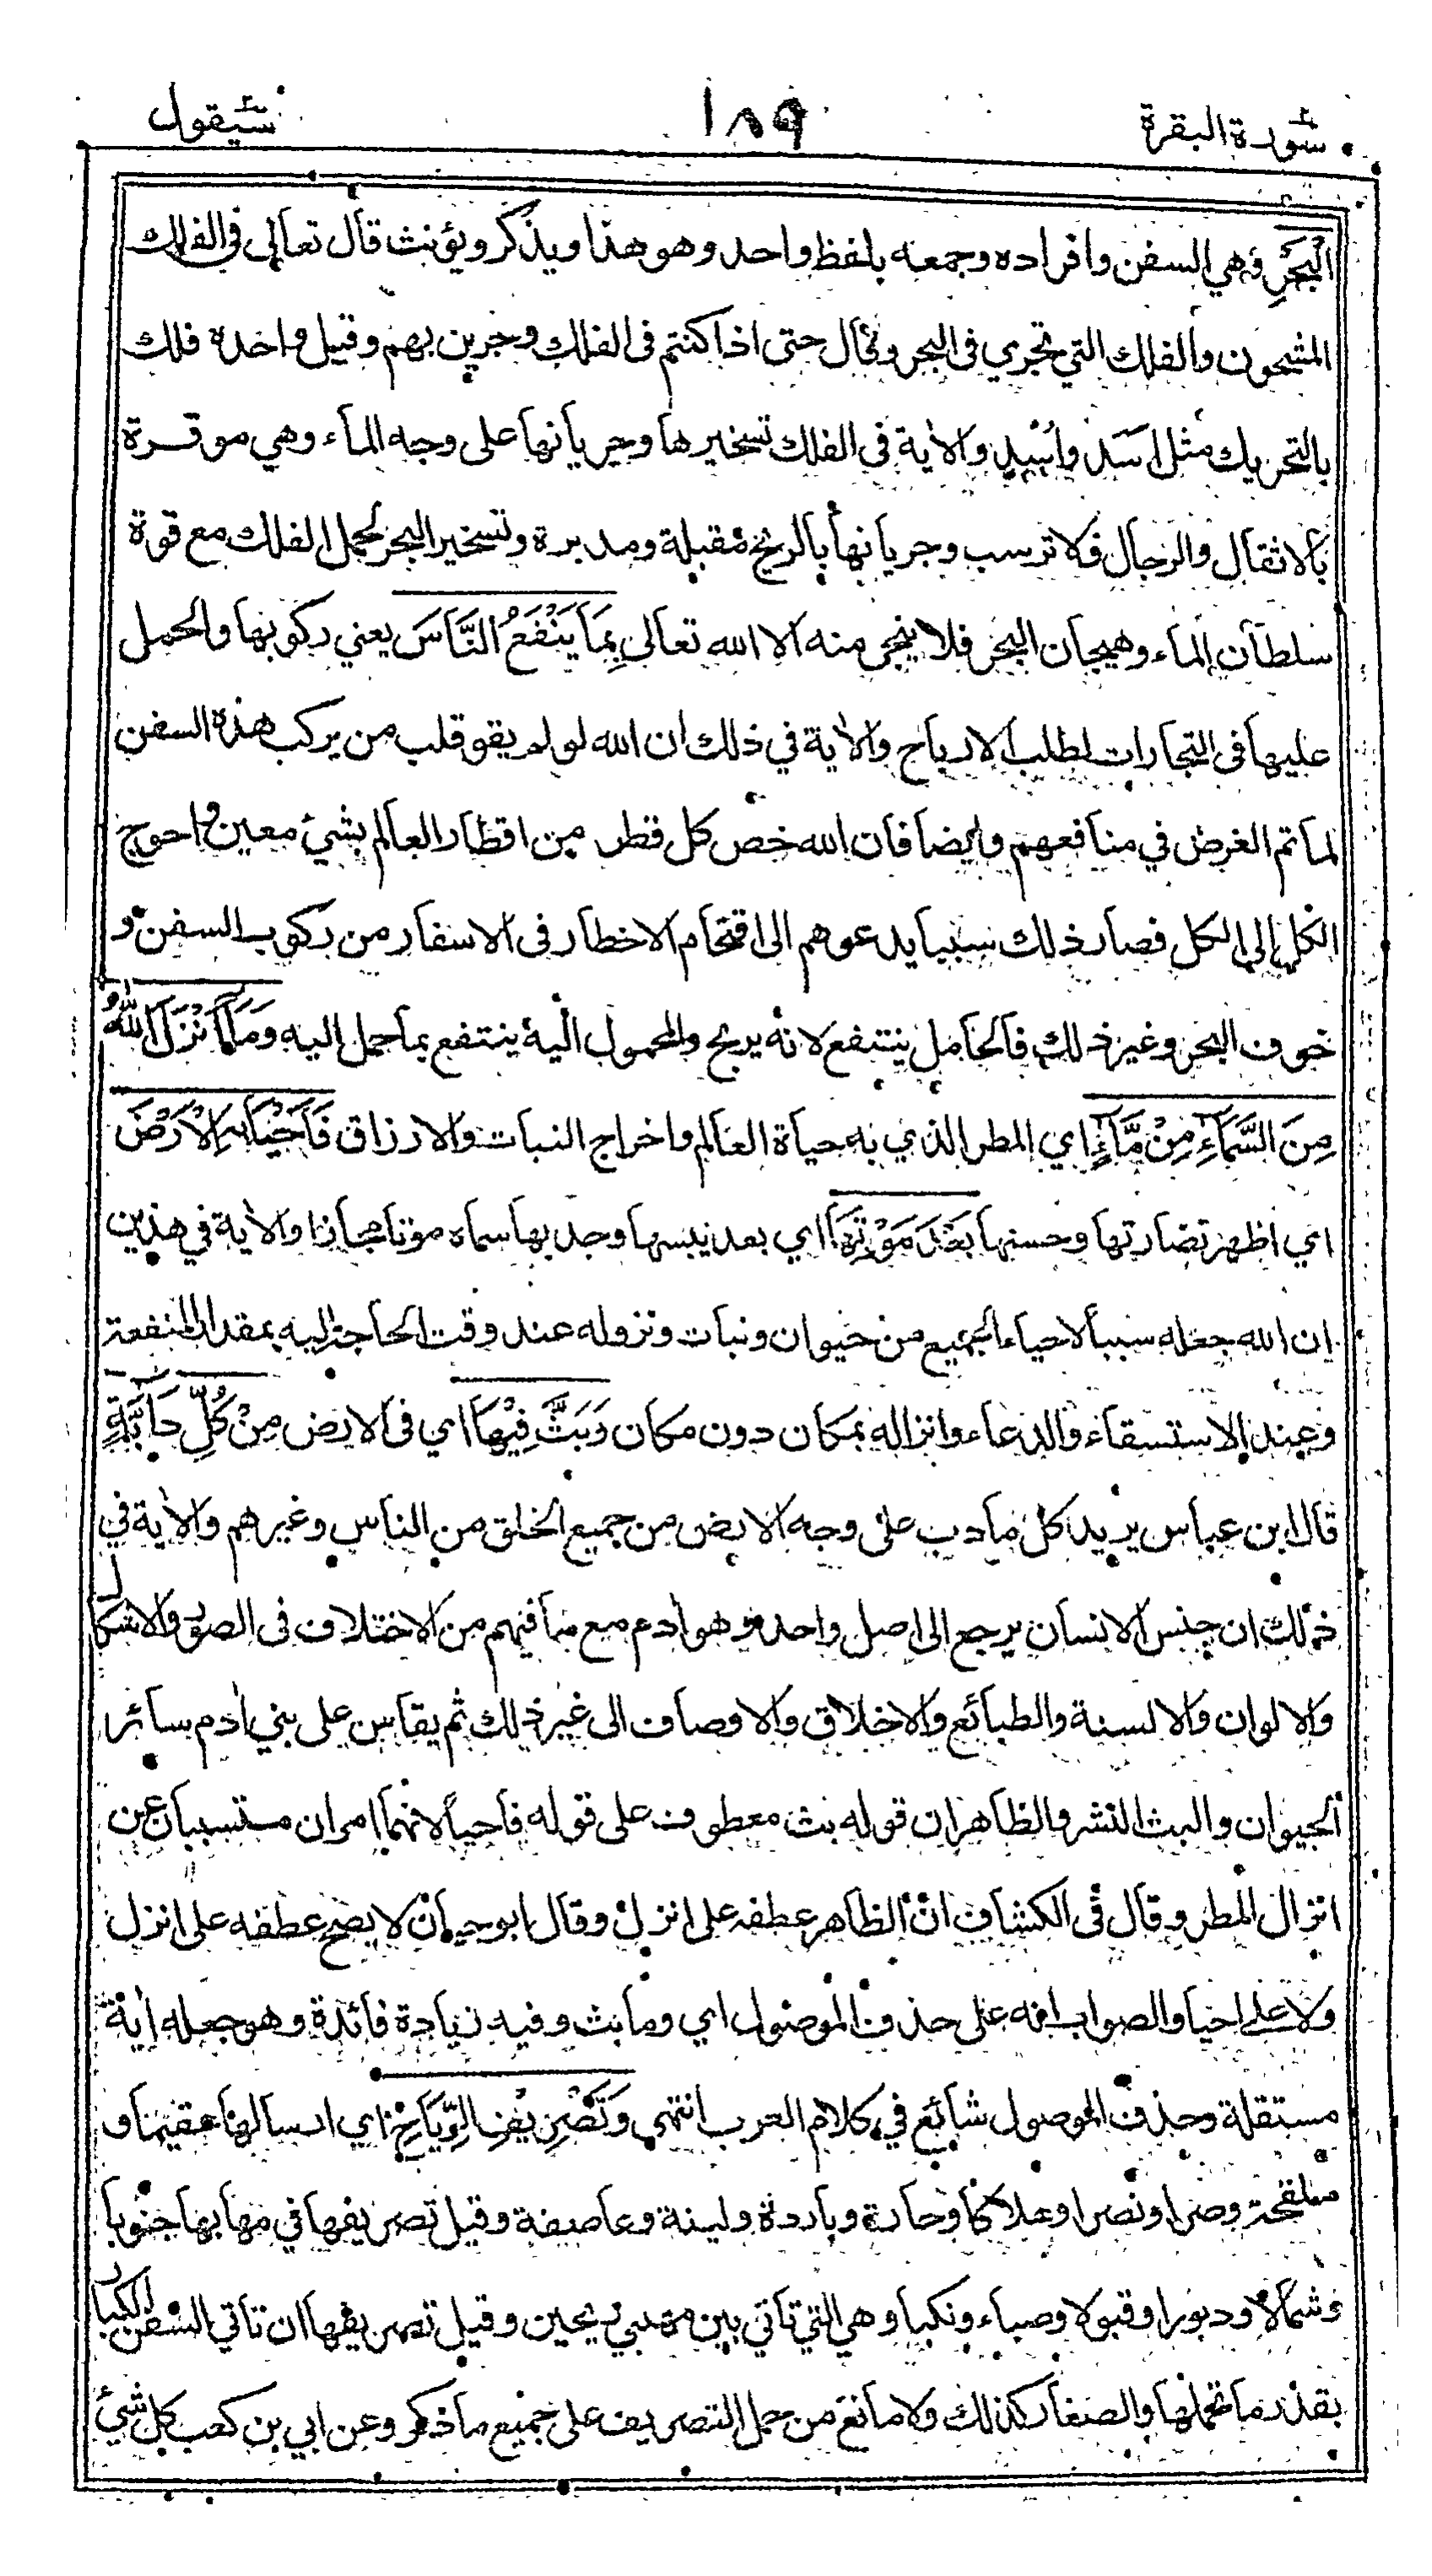 سورة البقرة ١٨٩ سيقول
الْبَحْرِ فهي السفن وافراده وجمعه بلفظ واحد وهو هذا ويذكر ويؤنث قال تعالى في الفلك
المشحون والفلك التي تجري في البحر وقال حتى اذا كنتم في الفلك وجرين بهم وقيل واحده فلك
بالتحريك مثل اسد وأُسْد والأية في الفلك تسخيرها وجريانها على وجه الماء وهي موقرة
بالاثقال والرجال فلا ترسب وجريانها بالريح مقبلة ومدبرة وتسخير البحر لحمل الفلك مع قوة
سلطان الماء وهيجان البحر فلا ينجي منه الا الله تعالى بِمَا يَنْفَعُ النَّاسَ يعني ركوبها والحمل
عليها في التجارات لطلب الارباح والأية في ذلك ان الله لو لم يقو قلب من يركب هذه السفن
لما تم الغرض في منافعهم وايضا فان الله خص كل قطر من اقطار العالم بشئ معين واحوج
الكل الى الكل فصار ذلك سببا يدعوهم الى اقتحام الاخطار في الاسفار من ركوب السفن و
خوف البحر وغير ذلك فالحامل ينتفع لانه يربح والمحمول اليه ينتفع بما حمل اليه وَمَا أَنْزَلَ اللّٰهُ
مِنَ السَّمَاءِ مِنْ مَّاءٍ اي المطر الذي به حياة العالم واخراج النبات والارزاق فَأَحْيَا بِهِ الْأَرْضَ
اي اظهر نضارتها وحسنها بَعْدَ مَوْتِهَا اي بعد يبسها وجدبها سماه موتا مجازا والأية في هذين
ان الله جعله سببا لاحياء الجميع من حيوان ونبات ونزوله عند وقت الحاجة اليه بمقدار المنفعة
وعند الاستسقاء والدعاء وانزاله بمكان دون مكان وَبَثَّ فِيْهَا اي في الارض مِنْ كُلِّ دَابَّةٍ
قال ابن عباس يريد كل ما دب على وجه الارض من جميع الخلق من الناس وغيرهم والأية في
ذلك ان جنس الانسان يرجع الى اصل واحد وهو أدم مع ما فيهم من الاختلاف في الصور والاشكال
والالوان والالسنة والطبائع والاخلاق والاوصاف الى غير ذلك ثم يقاس على بني أدم سائر
الحيوان والبث النشر والظاهر ان قوله بث معطوف على قوله فاحيا لانهما امران متسببان عن
انزال المطر وقال في الكشاف ان الظاهر عطفه على انزل وقال ابو حيان لا يصح عطفه على انزل
ولا على احيا والصواب انه على حذف الموصول اي وما بث وفيه زيادة فائدة وهو جعله أية
مستقلة وحذف الموصول شائع في كلام العرب انتهى وَتَصْرِيْفِ الرِّيَاحِ اي ارسالها عقيما و
ملقحة وصرا ونصرا وهلاكا وحارة وباردة ولينة وعاصفة وقيل تصريفها في مهابها جنوبا
وشمالا ودبورا وقبولا وصباء ونكبا وهي التي تاتي بين مهبي ريحين وقيل تصريفها ان تاتي السفن الكبار
بقدر ما تحملها والصغار كذلك ولا مانع من حمل التصريف على جميع ما ذكر وعن ابي بن كعب كل شئ